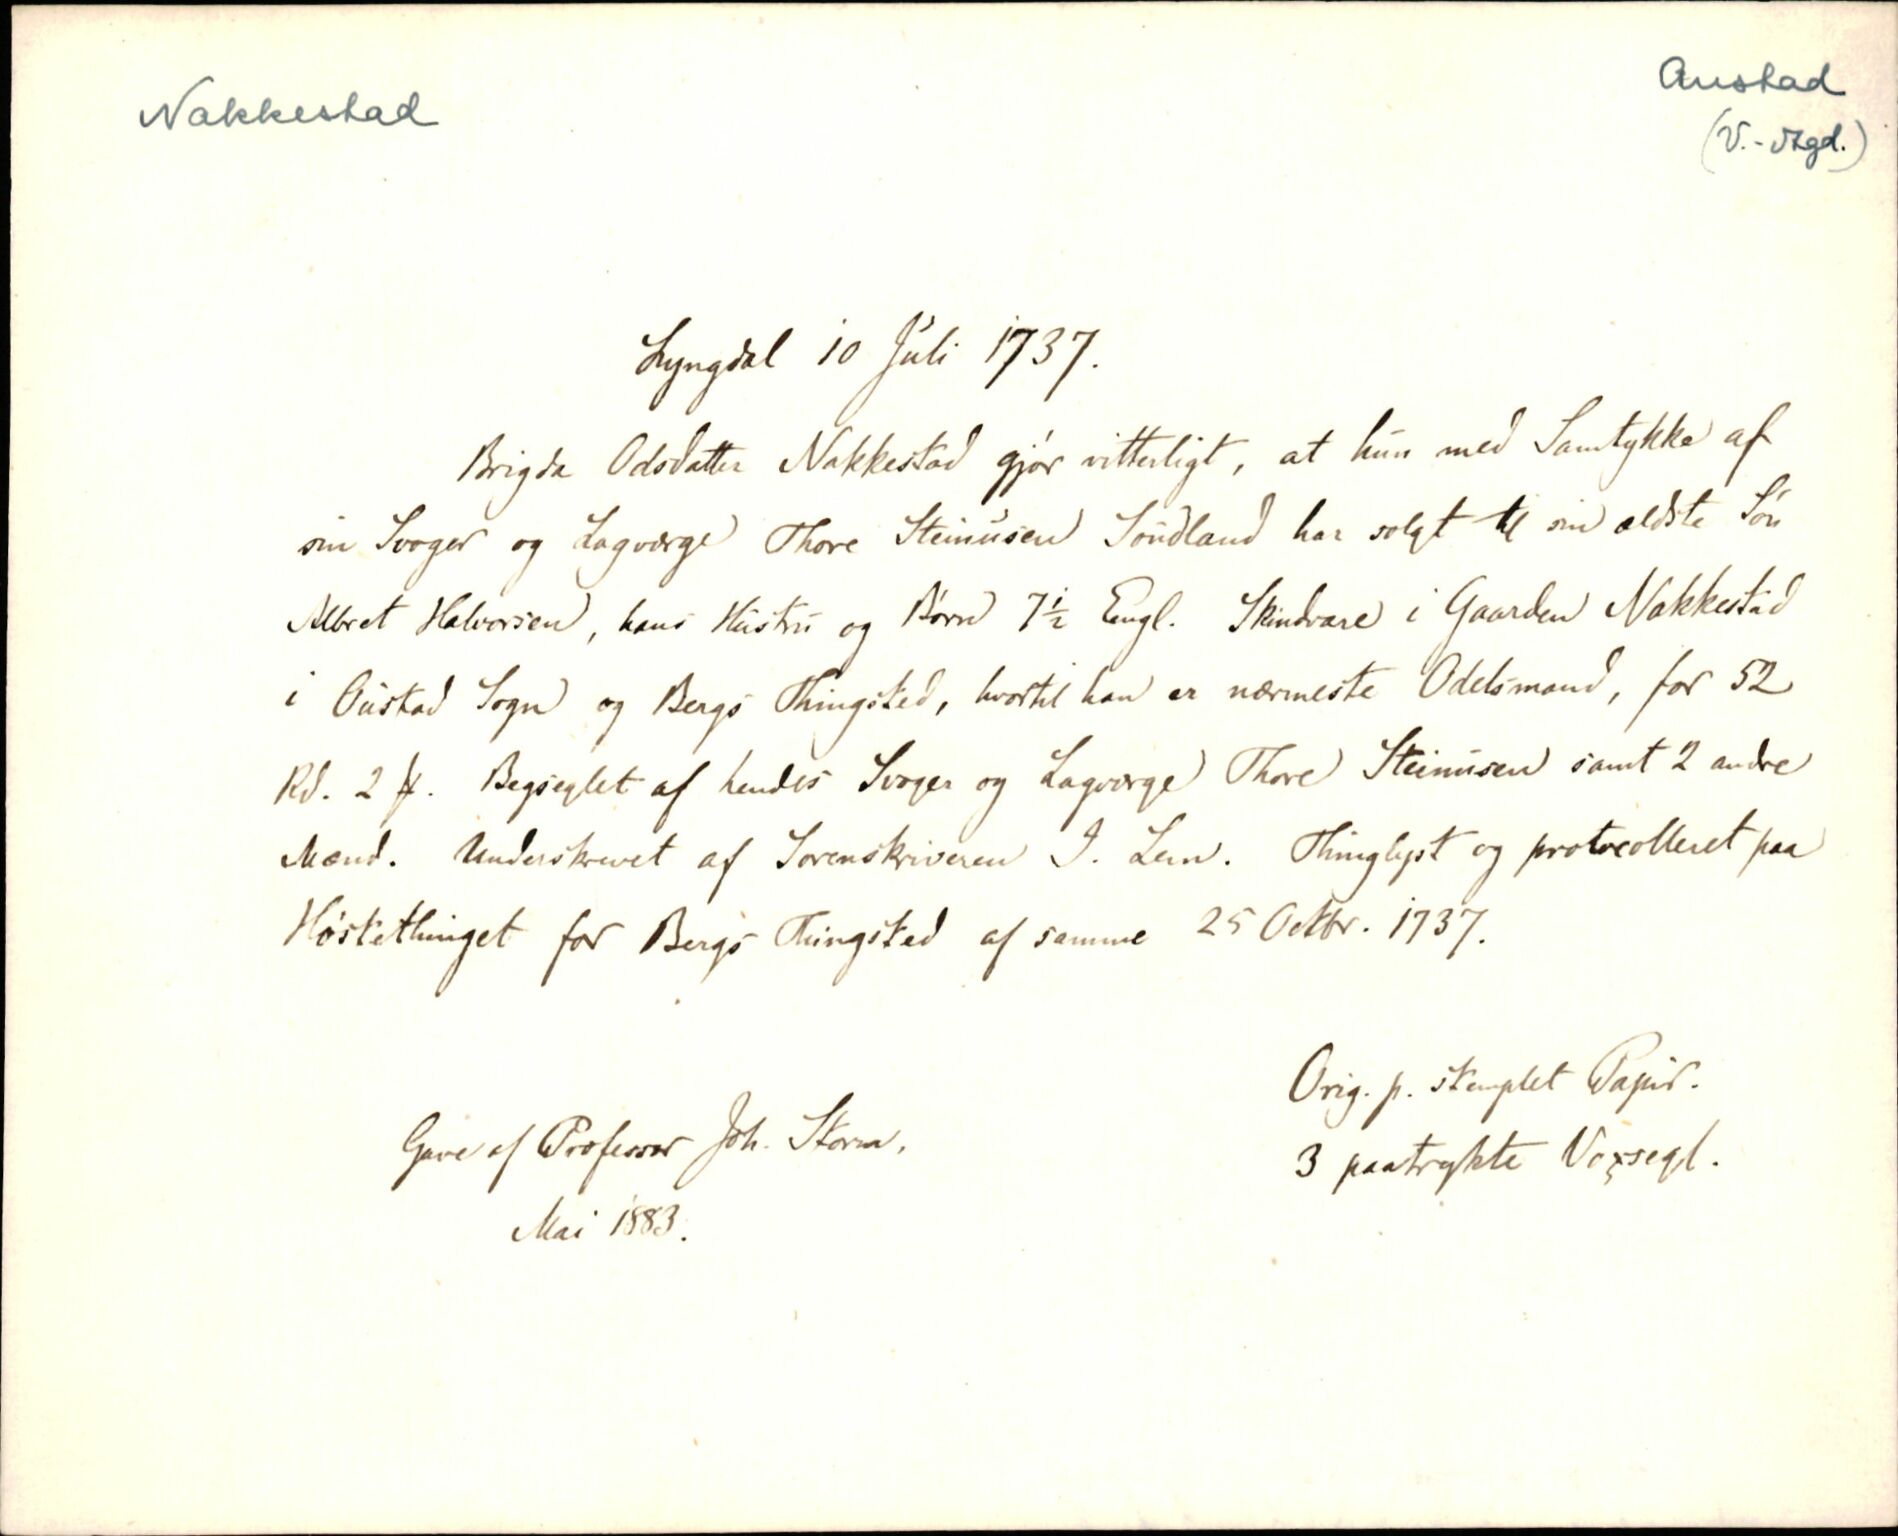 Nakkestad
Austad
(V.-Agd.)
Lyngdal 10 Juli 1737.
Brigda Odsdatter Nakkestad gjør vitterligt, at hun med Samtykke af
sin Svoger og Lagværge Thore Steinusen Sundland har solgt til sin ældste Søn
Albret Halvorsen, hans Hustru og Børn 7 1/2 Engl. Skindvare i Gaarden Nakkestad
i Oustad Sogn og Bergs Thingsted, hvortil han er nærmeste Odelsmand, for 52
Rd. 2 ƒ. Begseglet af hendes Svoger og Lagværge Thore Steinusen samt 2 andre
Mænd. Underskrevet af Sorenskriveren J. Lem. Thinglyst og protocolleret paa
Høstethinget for Bergs Thingsted af samme 25 Octbr. 1737.
Orig. p. stemplet Papir.
3 paatrykte Voxsegl.
Gave af Professor Joh. Storm,
Mai 1883.